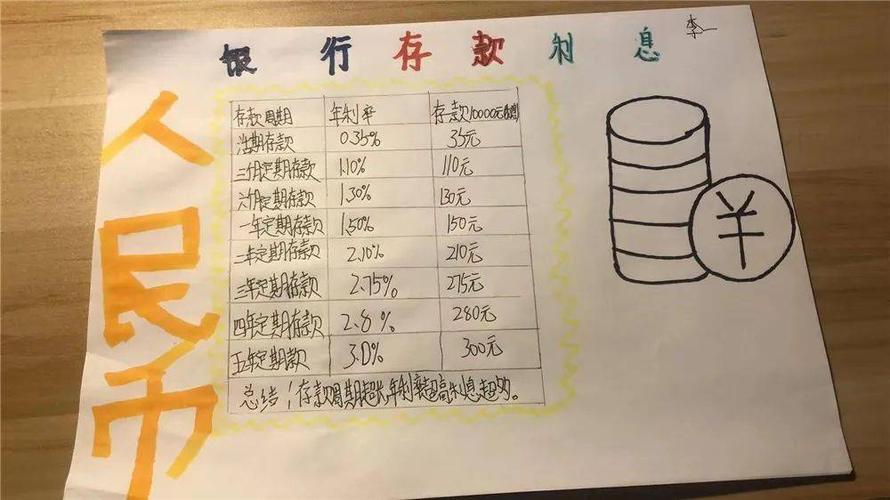 银行存款利息
李一
人民币
存款周期 年利率 存款10000元
活期存款 0.35% 35元
三个月定期存款 1.10% 110元
六个月定期存款 1.30% 130元
一年定期存款 1.50% 150元
二年定期存款 2.10% 210元
三年定期存款 2.75% 275元
四年定期存款 2.8% 280元
五年定期款 3.0% 300元
总结:存款周期超长,年利率超高,利息超多。
¥